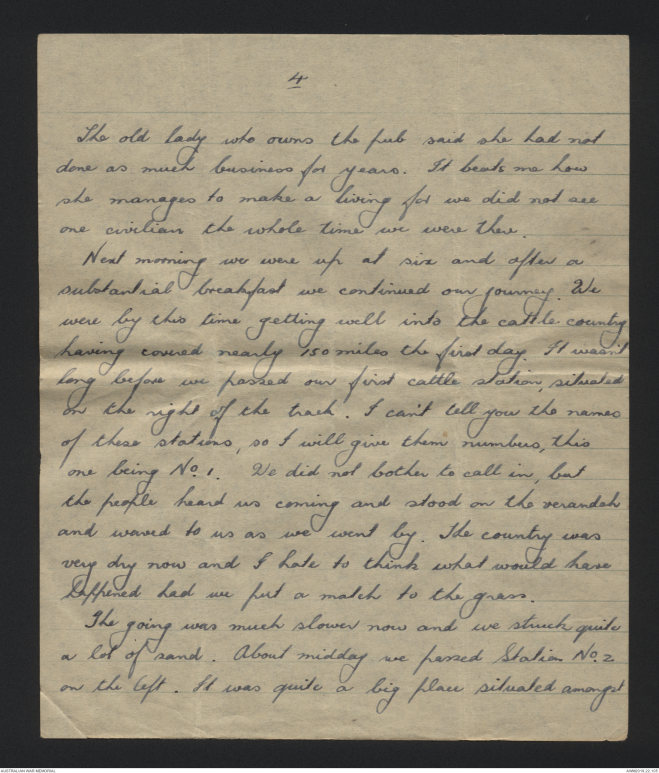 4
The old lady who owns the pub said she had not
done as much business for years. It beats me how
she manages to make a living for we did not see
one civilian the whole time we were there.
Next morning we were up at six and after a
substantial breakfast we continued our journey. We
were by this time getting well into the cattle country
having covered nearly 150 miles the first day. It wasn't
long before we passed our first cattle station, situated
on the right of the track. I can't tell you the names
of these stations, so I will give them numbers, this
one being No. 1. We did not bother to call in, but
the people heard us coming and stood on the verandah
and waved to us as we went by. The country was
very dry now and I hate to think what would have
happened had we put a match to the grass.
The going was much slower now and we struck quite
a lot of sand. About midday we passed Station No. 2
on the left. It was quite a big place situated amongst
AUSTRALIAN WAR MEMORIAL